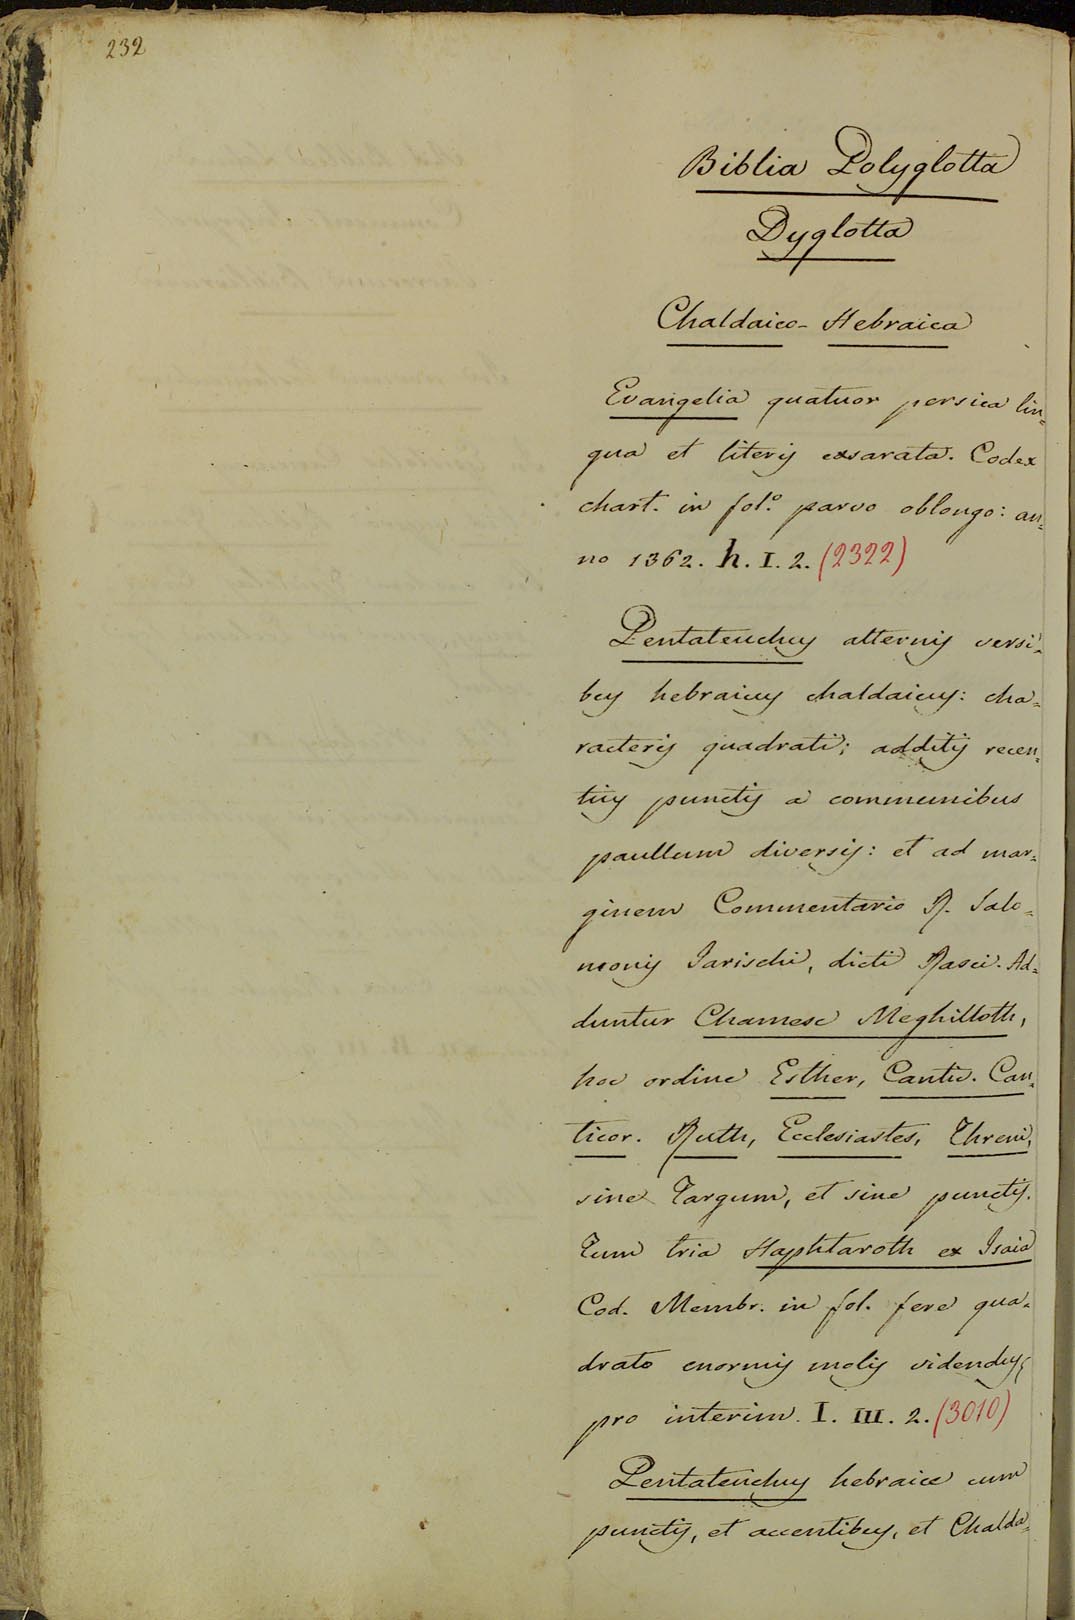 232
Biblia Polyglotta
Dyglotta
Chaldaico-Hebraica
Evangelia quatuor persica lin=
gua et literis exarata. Codex
chart. in fol.º parvo oblongo: an=
no 1362. h. I. 2. (2322)
Pentateuchus alternis versi=
bus hebraicus chaldaicus: cha=
racteris quadrati; additis recen=
tius punctis a communibus
paullum diversis: et ad mar=
ginem Commentario R. Salo=
monis Jarischi, dicti Rasci. Ad=
duntur Chamesc Meghilloth,
hoc ordine Esther, Cantic. Can=
ticor. Ruth, Ecclesiastes, Threni,
sine Targum, et sine punctis.
Tum tria Haphtaroth ex Isaia
Cod. Membr. in fol. fere qua=
drato enormis molis videndus
pro interim. I. III. 2. (3010)
Pentateuchus hebraice cum
punctis, et accentibus, et Chalda=